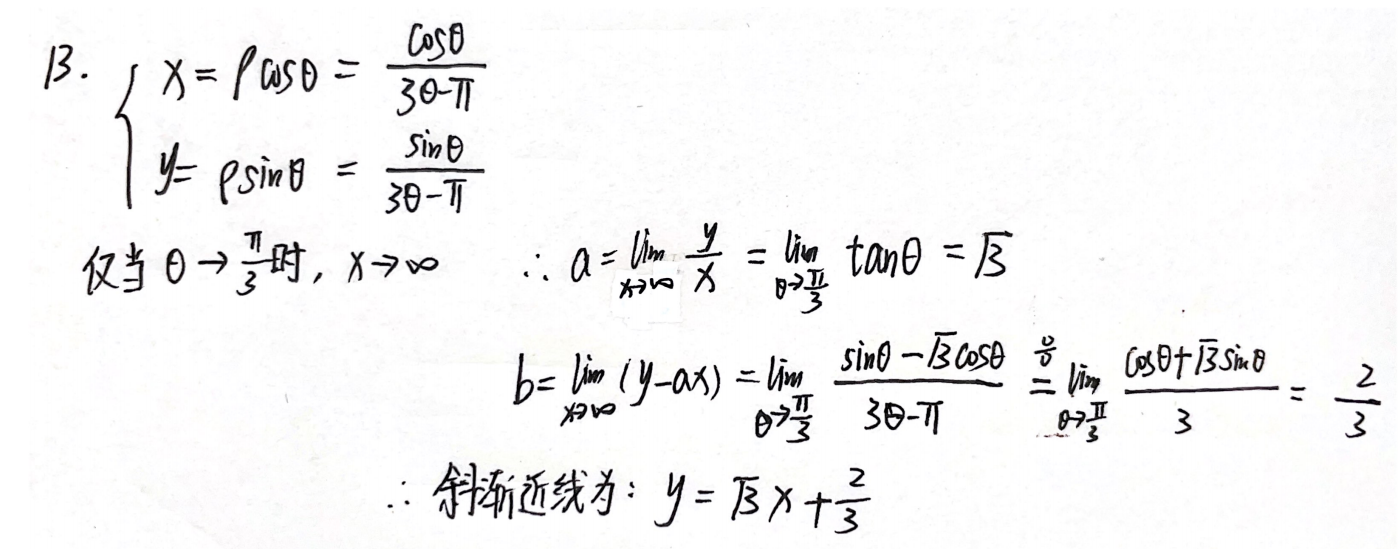 13. { x = ρcosθ = cosθ/(3θ-π)
y = ρsinθ = sinθ/(3θ-π)
仅当 θ→π/3时, x→∞ ∴ a = lim_{x→∞} y/x = lim_{θ→π/3} tanθ = √3
b = lim_{x→∞} (y-ax) = lim_{θ→π/3} (sinθ-√3cosθ)/(3θ-π) \overset{0/0}{=} lim_{θ→π/3} (cosθ+√3sinθ)/3 = 2/3
∴ 斜渐近线为: y = √3x+2/3